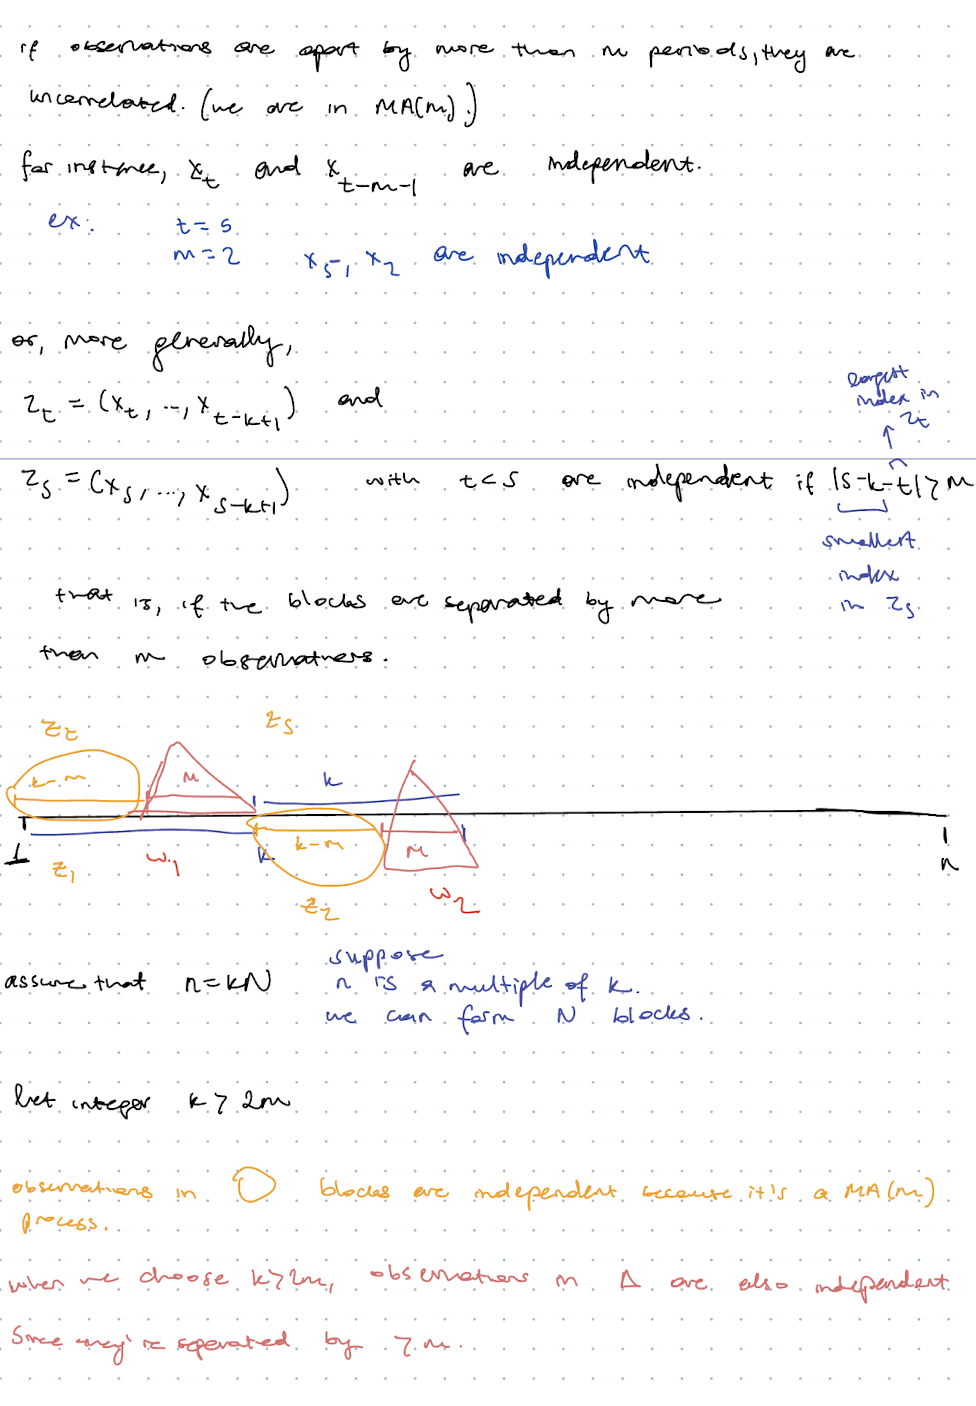 if observations are apart by more than m periods, they are
uncorrelated. (we are in MA(m).)
for instance, x_t and x_{t-m-1} are independent.
ex: t = 5
m = 2 x_5, x_2 are independent
or, more generally,
z_t = (x_t, ..., x_{t-k+1}) and
largest
index in
z_t
z_s = (x_s, ..., x_{s-k+1}) with t < s are independent if |s-k-t| > m
smallest
index
in z_s
that is, if the blocks are separated by more
than m observations.
z_t z_s
k-m M k
k-m M
1 z_1 w_1 k z_2 w_2 n
assume that n = kN
suppose
n is a multiple of k.
we can form N blocks.
Let integer k > 2m
observations in blocks are independent because it's a MA(m)
process.
when we choose k > 2m, observations in Δ are also independent
since they're seperated by > m.